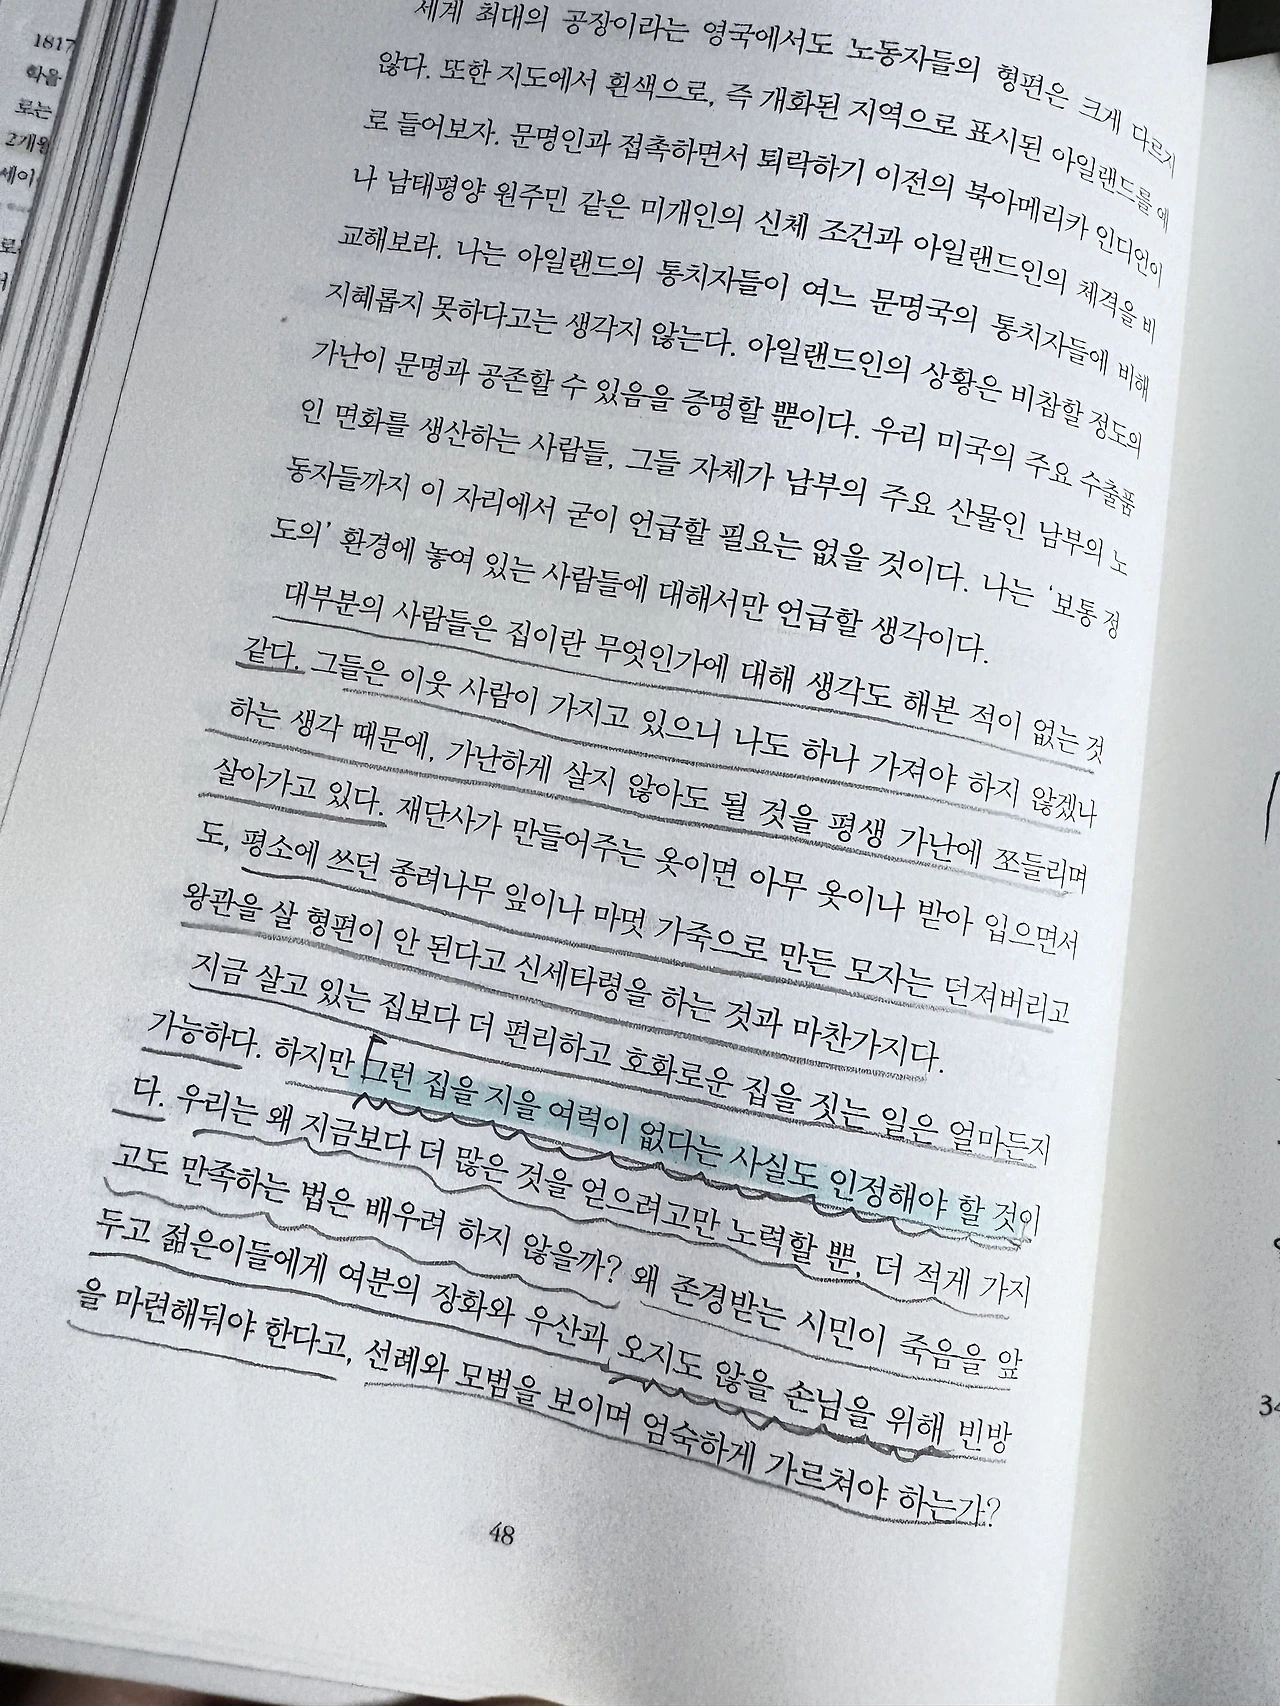 1817
화을
로는
2개월
세이
세계 최대의 공장이라는 영국에서도 노동자들의 형편은 크게 다르지
않다. 또한 지도에서 흰색으로, 즉 개화된 지역으로 표시된 아일랜드를 예
로 들어보자. 문명인과 접촉하면서 퇴락하기 이전의 북아메리카 인디언이
나 남태평양 원주민 같은 미개인의 신체 조건과 아일랜드인의 체격을 비
교해보라. 나는 아일랜드의 통치자들이 여느 문명국의 통치자들에 비해
지혜롭지 못하다고는 생각지 않는다. 아일랜드인의 상황은 비참할 정도의
가난이 문명과 공존할 수 있음을 증명할 뿐이다. 우리 미국의 주요 수출품
인 면화를 생산하는 사람들, 그들 자체가 남부의 주요 산물인 남부의 노
동자들까지 이 자리에서 굳이 언급할 필요는 없을 것이다. 나는 '보통 정
도의' 환경에 놓여 있는 사람들에 대해서만 언급할 생각이다.
대부분의 사람들은 집이란 무엇인가에 대해 생각도 해본 적이 없는 것
같다. 그들은 이웃 사람이 가지고 있으니 나도 하나 가져야 하지 않겠나
하는 생각 때문에, 가난하게 살지 않아도 될 것을 평생 가난에 쪼들리며
살아가고 있다. 재단사가 만들어주는 옷이면 아무 옷이나 받아 입으면서
도, 평소에 쓰던 종려나무 잎이나 마멋 가죽으로 만든 모자는 던져버리고
왕관을 살 형편이 안 된다고 신세타령을 하는 것과 마찬가지다.
지금 살고 있는 집보다 더 편리하고 호화로운 집을 짓는 일은 얼마든지
가능하다. 하지만 그런 집을 지을 여력이 없다는 사실도 인정해야 할 것이
다. 우리는 왜 지금보다 더 많은 것을 얻으려고만 노력할 뿐, 더 적게 가지
고도 만족하는 법은 배우려 하지 않을까? 왜 존경받는 시민이 죽음을 앞
두고 젊은이들에게 여분의 장화와 우산과 오지도 않을 손님을 위해 빈방
을 마련해둬야 한다고, 선례와 모범을 보이며 엄숙하게 가르쳐야 하는가?
48
34